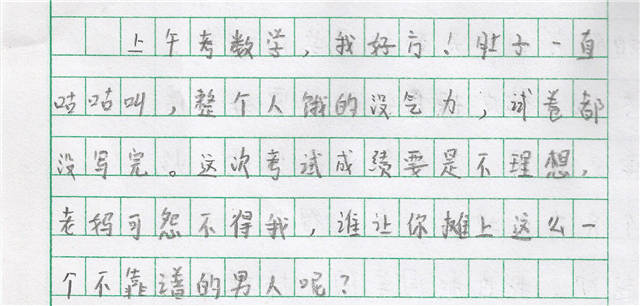 上午考数学，我好方！肚子一直
咕咕叫，整个人饿的没气力，试卷都
没写完。这次考试成绩要是不理想，
老妈可怨不得我，谁让你摊上这么一
个不靠谱的男人呢？